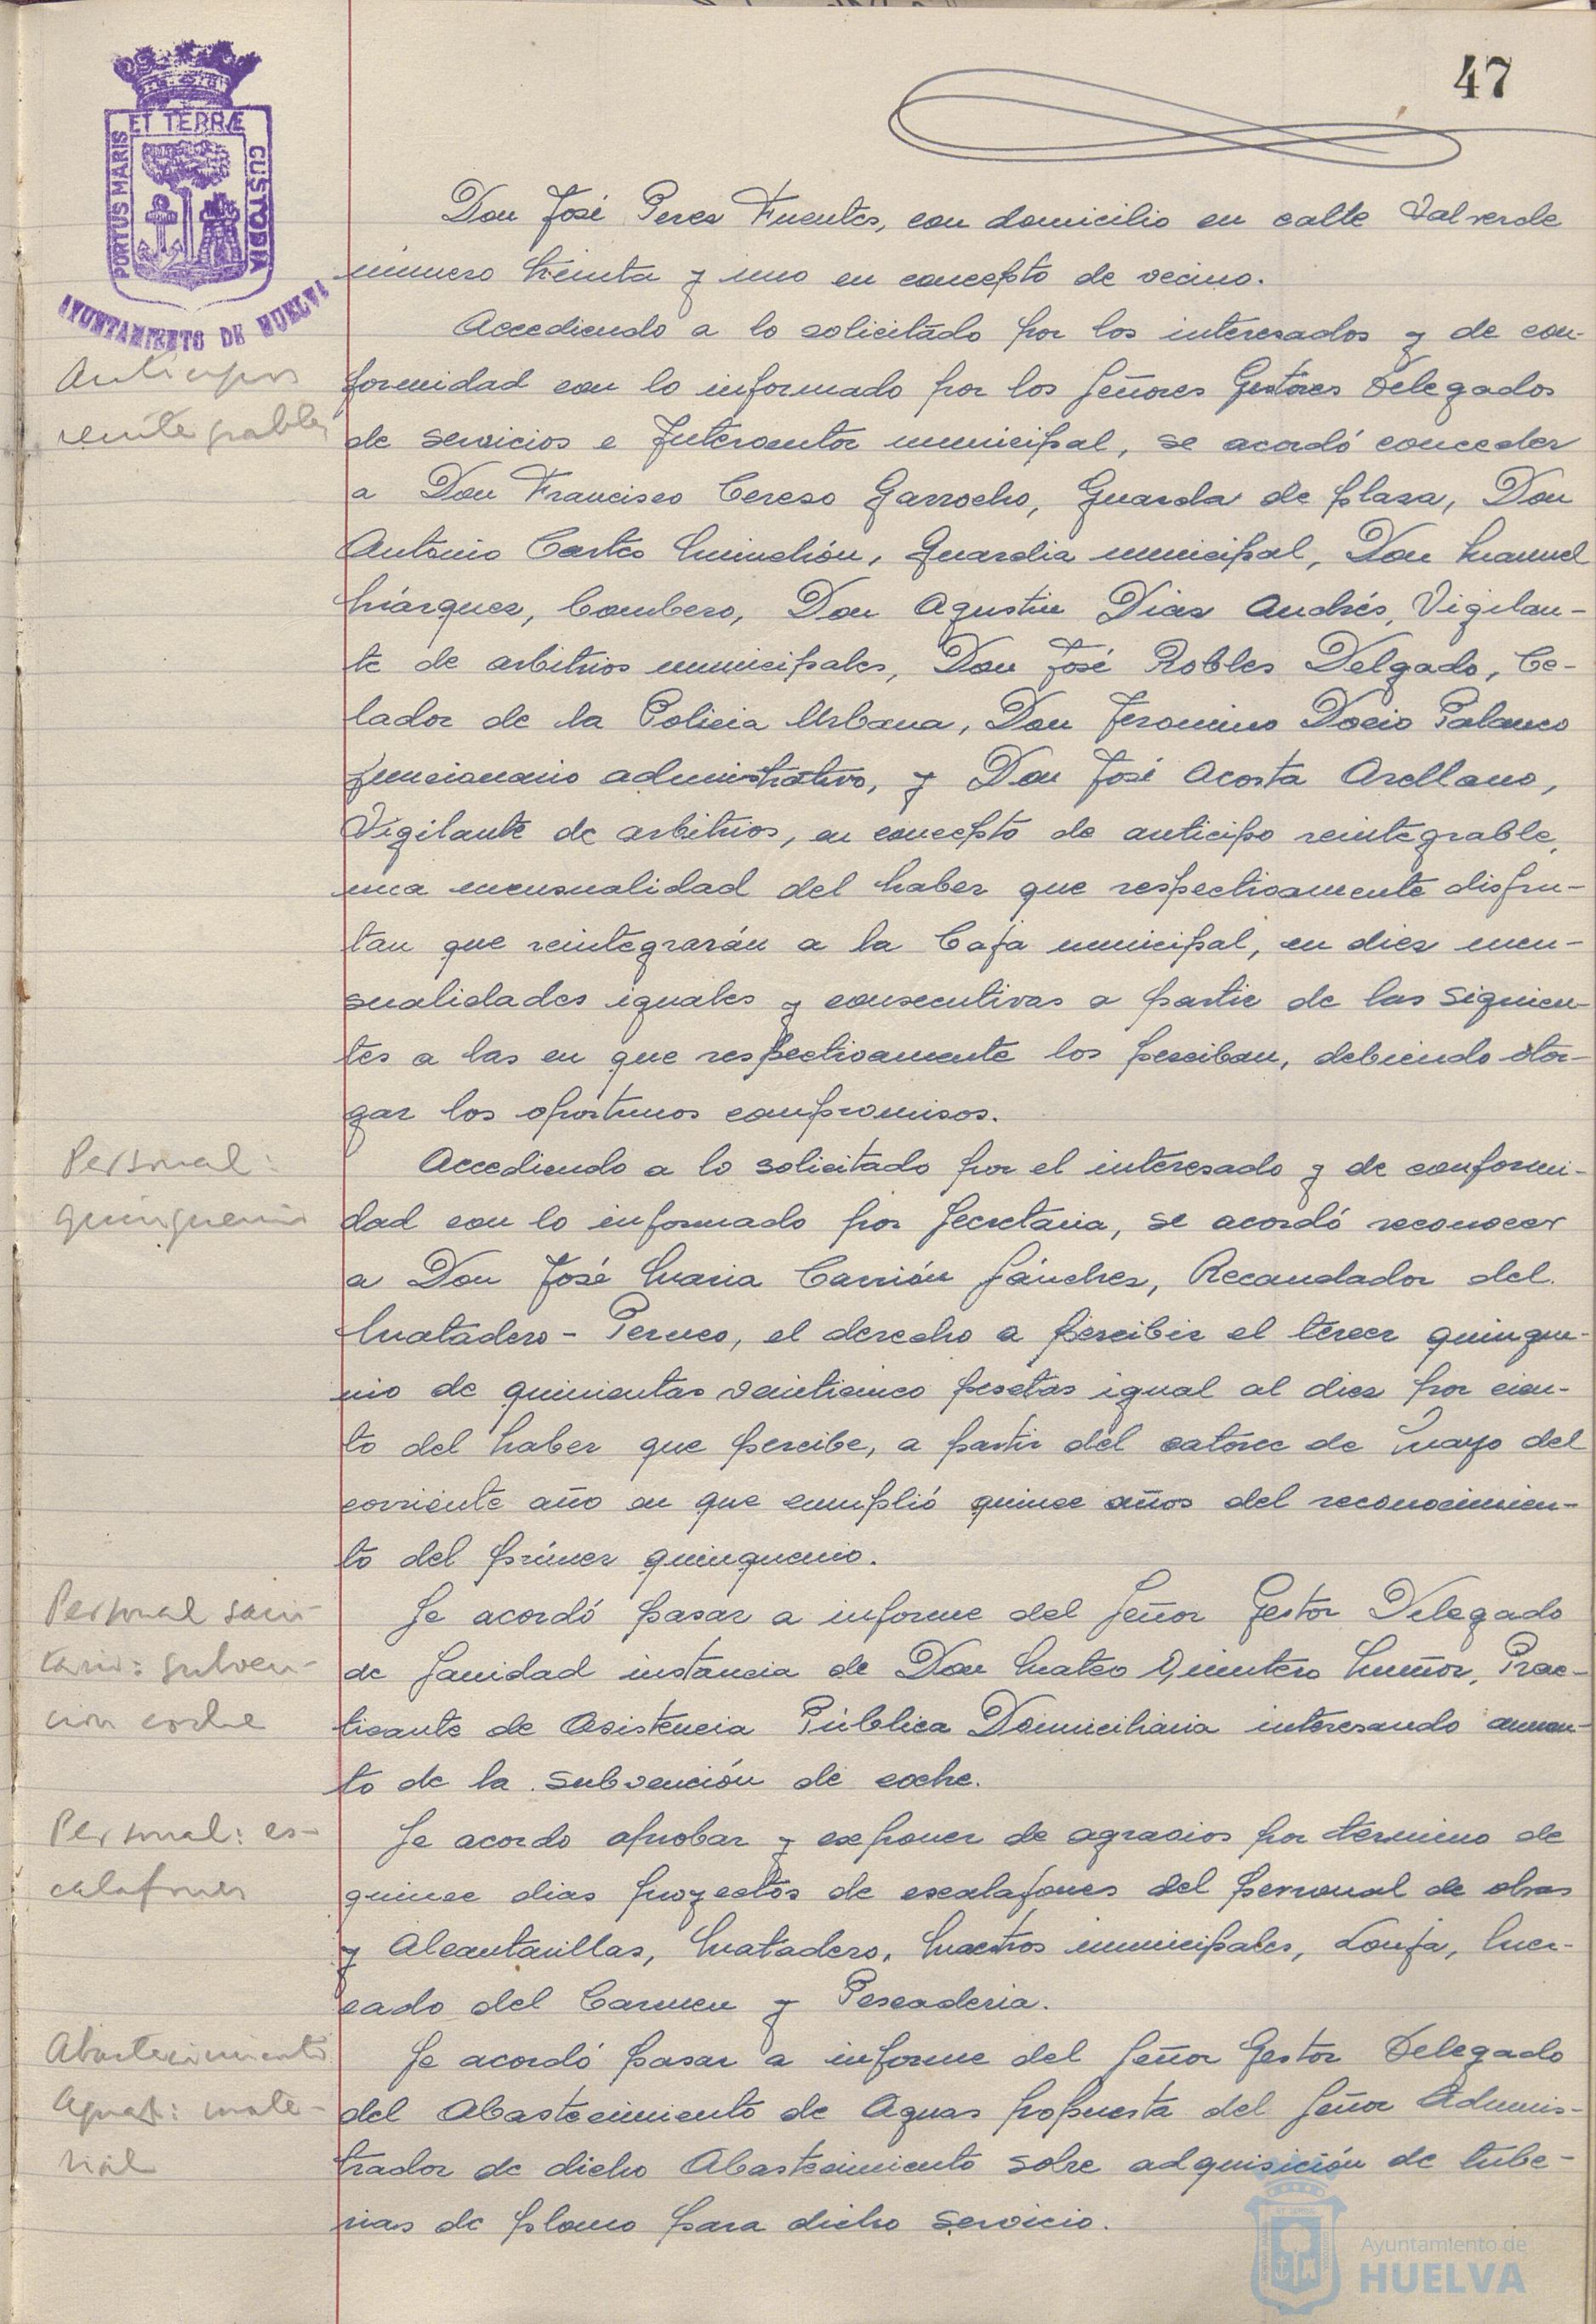 47
ET TERRÆ
PORTUS MARIS
CUSTODIA
AYUNTAMIENTO DE HUELVA
Don José Perez Fuentes, con domicilio en calle Valverde
número treinta y uno en concepto de vecino.
Anticipos
reintegrables
Accediendo a lo solicitado por los interesados y de con-
formidad con lo informado por los Señores Gestores Delegados
de servicios e Interventor municipal, se acordó conceder
a Don Francisco Cerezo Garrocho, Guarda de plaza, Don
Antonio Castro Guardia municipal, Don Manuel
Márquez, Bombero, Don Agustin Diaz Andrés, Vigilan-
te de arbitrios municipales, Don José Robles Delgado, Ce-
lador de la Policia Urbana, Don Jeronimo Docio Palanco
funcionario administrativo, y Don José Acosta Arellano,
Vigilante de arbitrios, en concepto de anticipo reintegrable,
una mensualidad del haber que respectivamente disfru-
tan que reintegrarán a la Caja municipal, en diez men-
sualidades iguales y consecutivas a partir de las siguien-
tes a las en que respectivamente los perciban, debiendo otor-
gar los oportunos compromisos.
Personal:
quinquenio
Accediendo a lo solicitado por el interesado y de conformi-
dad con lo informado por Secretaria, se acordó reconocer
a Don José Maria Carrión Sánchez, Recaudador del
Matadero-Perneo, el derecho a percibir el tercer quinque-
nio de quinientas veinticinco pesetas igual al diez por cien-
to del haber que percibe, a partir del catorce de Mayo del
corriente año en que cumplió quince años del reconocimien-
to del primer quinquenio.
Personal sani-
tario: subven-
cion coche
Se acordó pasar a informe del Señor Gestor Delegado
de Sanidad instancia de Don Mateo Quintero Muñoz, Prac-
ticante de Asistencia Pública Domiciliaria interesando aumen-
to de la subvención de coche.
Personal: es-
calafones
Se acordo aprobar y exponer de agravios por termino de
quince dias proyectos de escalafones del personal de obras
y Alcantarillas, Matadero, Maestros municipales, Lonja, Mer-
cado del Carmen y Pescaderia.
Abastecimiento
Aguas: mate-
rial
Se acordó pasar a informe del Señor Gestor Delegado
del Abastecimiento de Aguas propuesta del Señor Adminis-
trador de dicho Abastecimiento sobre adquisición de tube-
rias de plomo para dicho servicio.
Ayuntamiento de
HUELVA